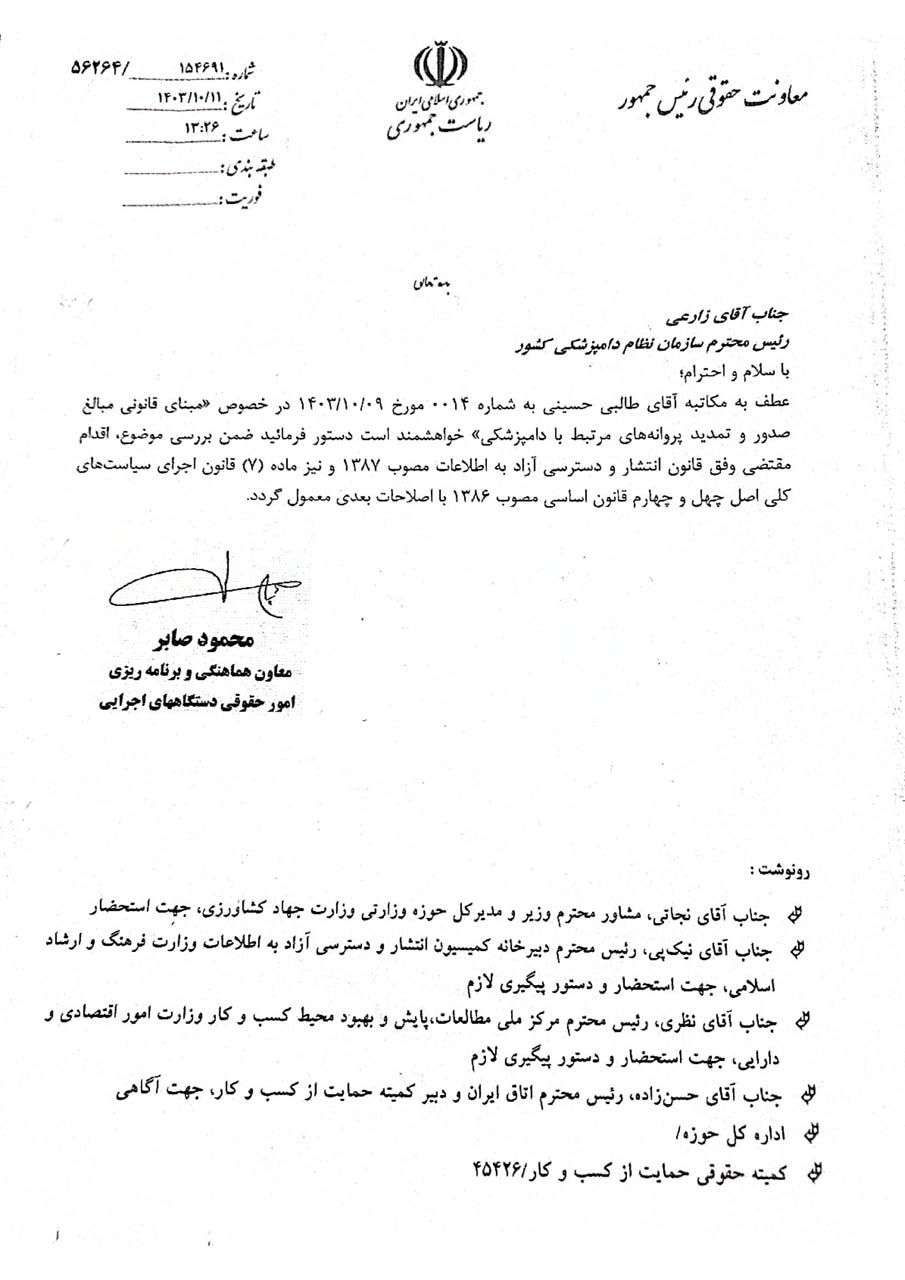 معاونت حقوقی رئیس جمهور
جمهوری اسلامی ایران
ریاست جمهوری
شماره: ۱۵۴۶۹۱ /۵۶۲۶۴
تاریخ: ۱۴۰۳/۱۰/۱۱
ساعت: ۱۳:۲۶
طبقه بندی:
فوریت:
بسمه تعالی
جناب آقای زارعی
رئیس محترم سازمان نظام دامپزشکی کشور
با سلام و احترام؛
عطف به مکاتبه آقای طالبی حسینی به شماره ۰۰۱۴ مورخ ۱۴۰۳/۱۰/۰۹ در خصوص «مبنای قانونی مبالغ
صدور و تمدید پروانه‌های مرتبط با دامپزشکی» خواهشمند است دستور فرمائید ضمن بررسی موضوع، اقدام
مقتضی وفق قانون انتشار و دسترسی آزاد به اطلاعات مصوب ۱۳۸۷ و نیز ماده (۷) قانون اجرای سیاست‌های
کلی اصل چهل و چهارم قانون اساسی مصوب ۱۳۸۶ با اصلاحات بعدی معمول گردد.
محمود صابر
معاون هماهنگی و برنامه ریزی
امور حقوقی دستگاههای اجرایی
رونوشت :
جناب آقای نجاتی، مشاور محترم وزیر و مدیرکل حوزه وزارتی وزارت جهاد کشاورزی، جهت استحضار
جناب آقای نیک‌پی، رئیس محترم دبیرخانه کمیسیون انتشار و دسترسی آزاد به اطلاعات وزارت فرهنگ و ارشاد
اسلامی، جهت استحضار و دستور پیگیری لازم
جناب آقای نظری، رئیس محترم مرکز ملی مطالعات،پایش و بهبود محیط کسب و کار وزارت امور اقتصادی و
دارایی، جهت استحضار و دستور پیگیری لازم
جناب آقای حسن‌زاده، رئیس محترم اتاق ایران و دبیر کمیته حمایت از کسب و کار، جهت آگاهی
اداره کل حوزه/
کمیته حقوقی حمایت از کسب و کار/۴۵۴۲۶